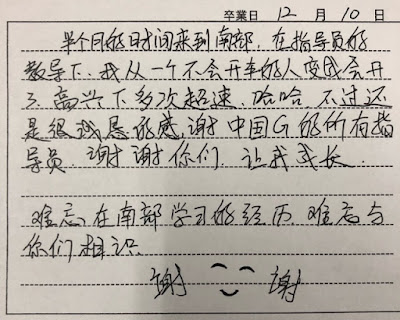 卒業日 12月10日
半个月的时间来到南部，在指导员的
教导下，我从一个不会开车的人变成会开
了。高兴下多次超速，哈哈，不过还
是很诚恳的感谢中国G的所有指
导员，谢谢你们，让我成长。
难忘在南部学习的经历，难忘与
你们相识。
谢 谢